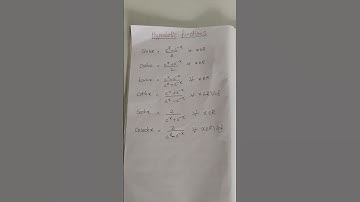 Hyperbolic functions
Sinhx = e^x - e^-x / 2 ∀ x∈R
Coshx = e^x + e^-x / 2 ∀ x∈R
tanhx = e^x - e^-x / e^x + e^-x ∀ x∈R
Cothx = e^x + e^-x / e^x - e^-x ∀ x∈R\{0}
Sechx = 2 / e^x + e^-x ∀ x∈R
Cosechx = 2 / e^x - e^-x ∀ x∈R\{0}